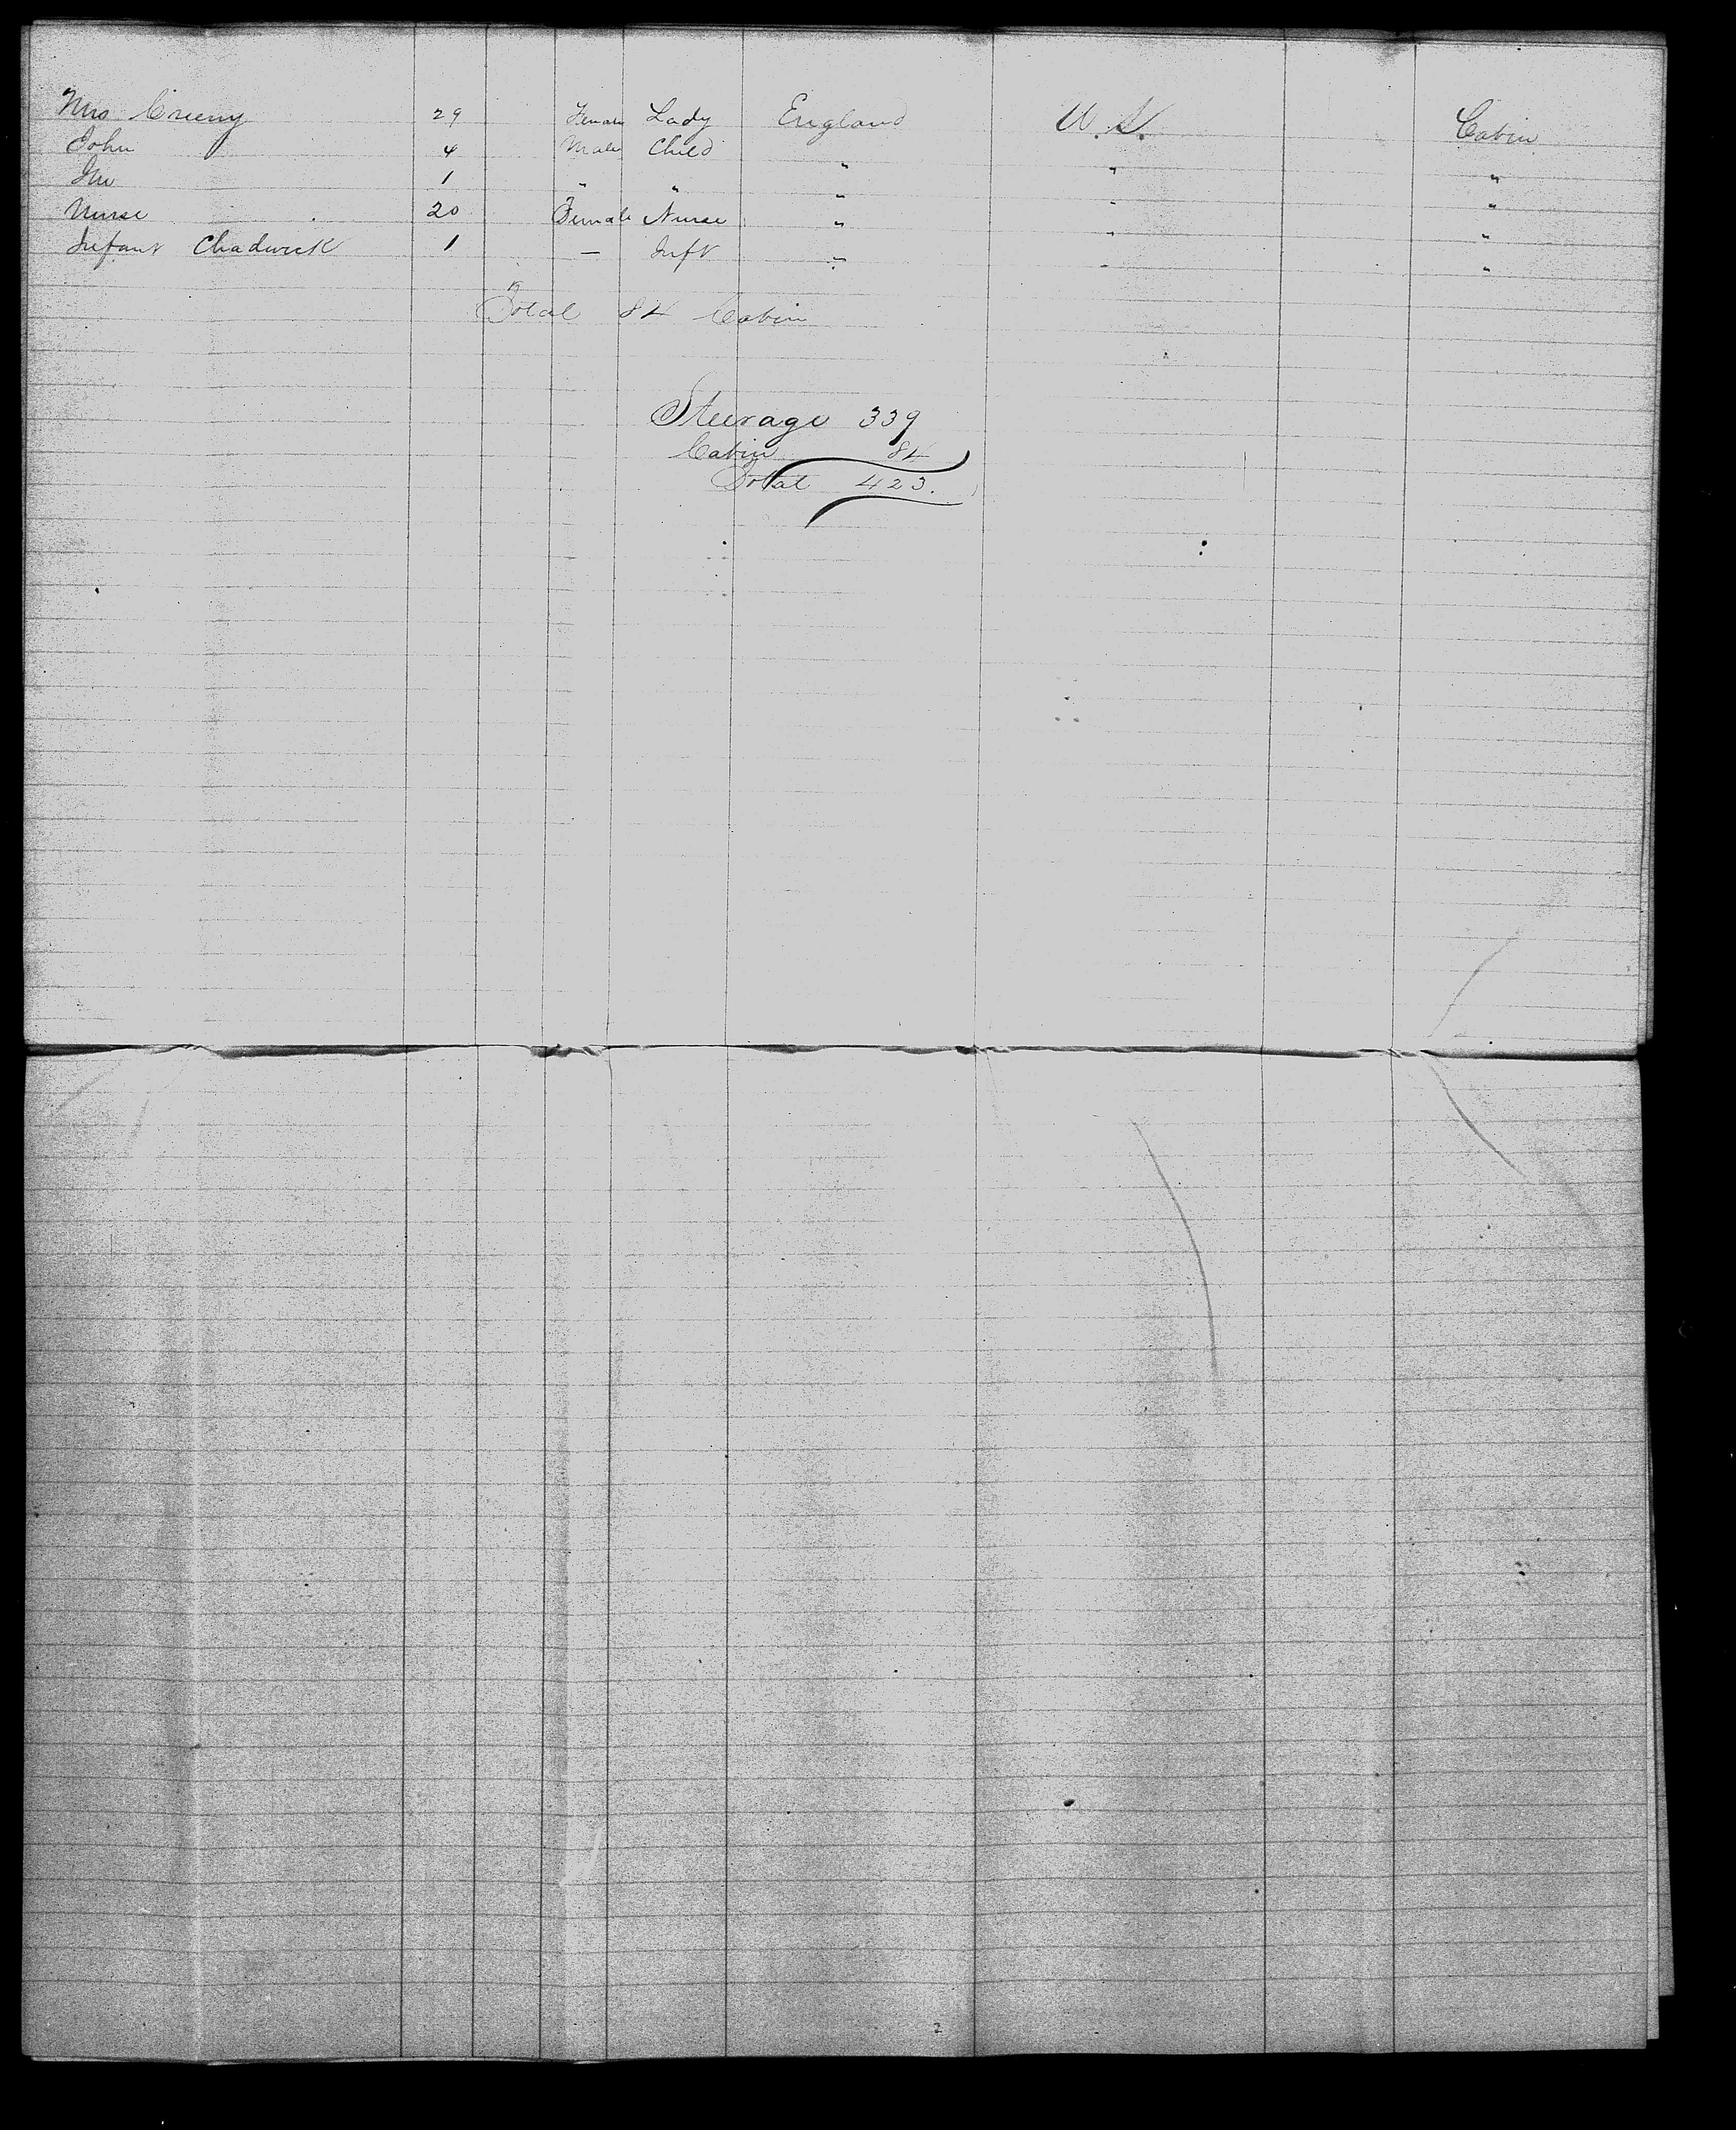 Mrs Creeny 29 Female Lady England U.S. Cabin
John 4 Male Child " " "
1 " " " " "
Nurse 20 Female Nurse " " "
Infant Chadwick 1 — Inft " " "
Total 84 Cabin
Steerage 339
Cabin 84
Total 423.